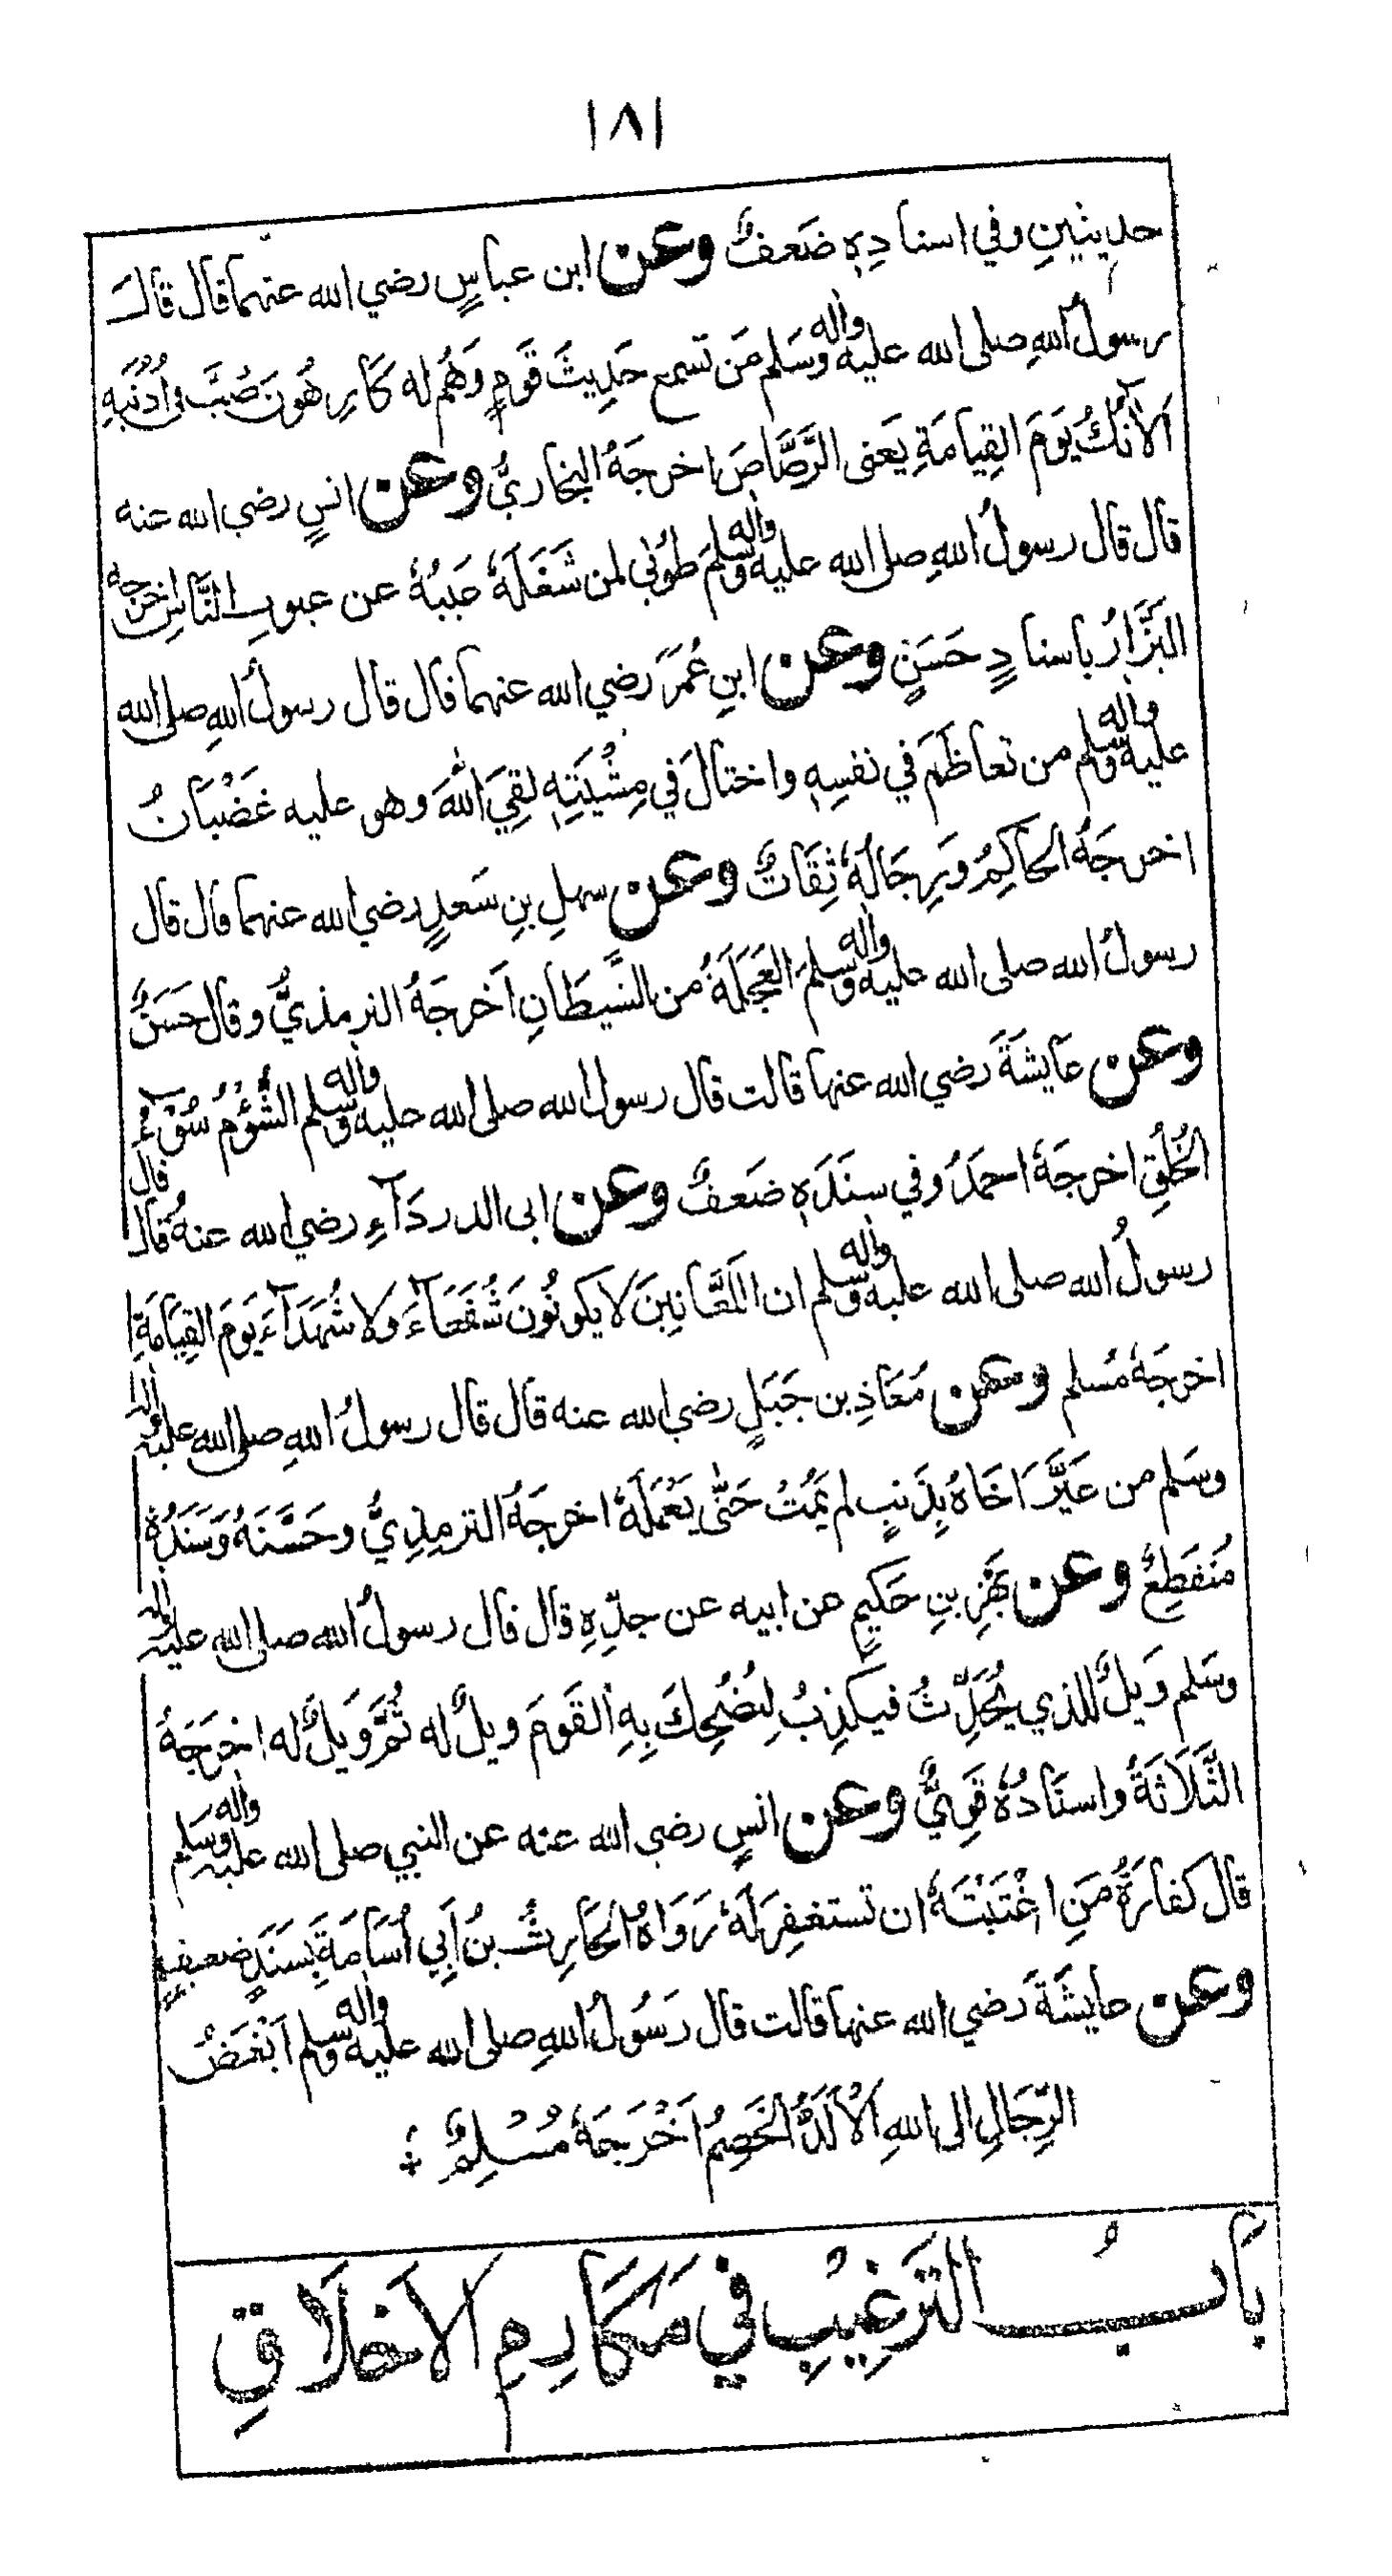 ١٨١
حديثينِ وفي اسنادِهٖ ضَعفٌ وعن ابن عباسٍ رضي الله عنهما قال قال
رسولُ اللهِ صلى الله عليه واٰله وسَلم مَن تسمع حَدِيثَ قَومٍ وَهُم له كَارِهُونَ صُبَّ فى اُذُنَيهِ
اَلآنُكُ يَومَ القِيامَةِ يَعنى الرَّصَّاصَ اخرجَهُ البخاريُّ وعن انسٍ رضي الله عنه
قال قال رسولُ اللهِ صلى الله عليه واٰله وسلمَ طُوبٰى لمن شَغَلَهٗ عَيبُهٗ عن عيوبِ النَّاسِ اخرجه
البَزَّارُ باسنادٍ حَسَنٍ وعن ابنِ عُمَرَ رضي الله عنهما قال قال رسولُ اللهِ صلى الله
عليه واٰله وسلم من تعاظَمَ في نفسِهٖ واختالَ في مِشْيَتِهٖ لقِيَ اللهَ وهو عليه غَضْبَانُ
اخرجَهُ الحاكِمُ وَرِجَالُهٗ ثِقَاتٌ وعن سهلِ بنِ سَعدٍ رضي الله عنهما قال قال
رسولُ الله صلى الله عليه واٰله وسلمَ العَجَلَةُ من الشَّيطَانِ اَخرجَهُ الترمذيُّ وقال حَسَنٌ
وعن عَايشَةَ رضي الله عنها قالت قال رسول الله صلى الله عليه واٰله وسلم الشُّؤْمُ سُوْٓءُ
الخُلُقِ اخرجَهٗ احمدُ وفي سنَدَهٖ ضَعفٌ وعن ابى الدردَآءِ رضي الله عنهُ قال قال
رسولُ الله صلى الله عليه واٰله وسلم ان اللَّعَّانِينَ لا يكونُونَ شُفَعَآءَ ولا شُهَدَآءَ يَومَ القِيَامَةِ
اخرجَهٗ مُسلم وعن مُعَاذِ بن جَبَلٍ رضي الله عنه قال قال رسولُ اللهِ صلى الله عليه واٰله
وسَلم من عَيَّرَ اَخَاهُ بِذَنبٍ لم يَمُتْ حَتّٰى يَعْمَلَهٗ اخرجَهُ الترمِذِيُّ وحَسَّنَهُ وَسَنَدُهٗ
مُنقَطِعٌ وعن بَهزِ بنِ حَكِيمٍ عن ابيه عن جدِّهِ قال قال رسولُ الله صلى الله عليه واٰله
وسَلم وَيلٌ للذي يُحَدِّثُ فيكذِبُ لِيُضْحِكَ بِهِ القَومَ ويلٌ له ثُمَّ وَيلٌ له اخرَجَهُ
الثَّلَاثَةُ واسنَادُهٗ قَوِيٌّ وعن انسٍ رضي الله عنه عن النبي صلى الله عليه واٰله وسَلم
قال كفارَةُ مَنِ اغْتَبْتَهٗ ان تستغفِرَ لَهٗ رَوَاهُ الحَارِثُ بنُ اَبِي اُسَامَةَ بِسَنَدٍ ضعيفٍ
وعن عايشَةَ رضي الله عنها قالت قال رَسُولُ اللهِ صلى الله عليه واٰله وسلم اَبْغَضُ
الرِّجَالِ الى اللهِ اَلْاَلَدُّ الخَصِمُ اَخْرَجَهٗ مُسْلِمٌ
بَابُ التَرْغِيْبِ في مَكَارِمِ الاَخلَاقِ